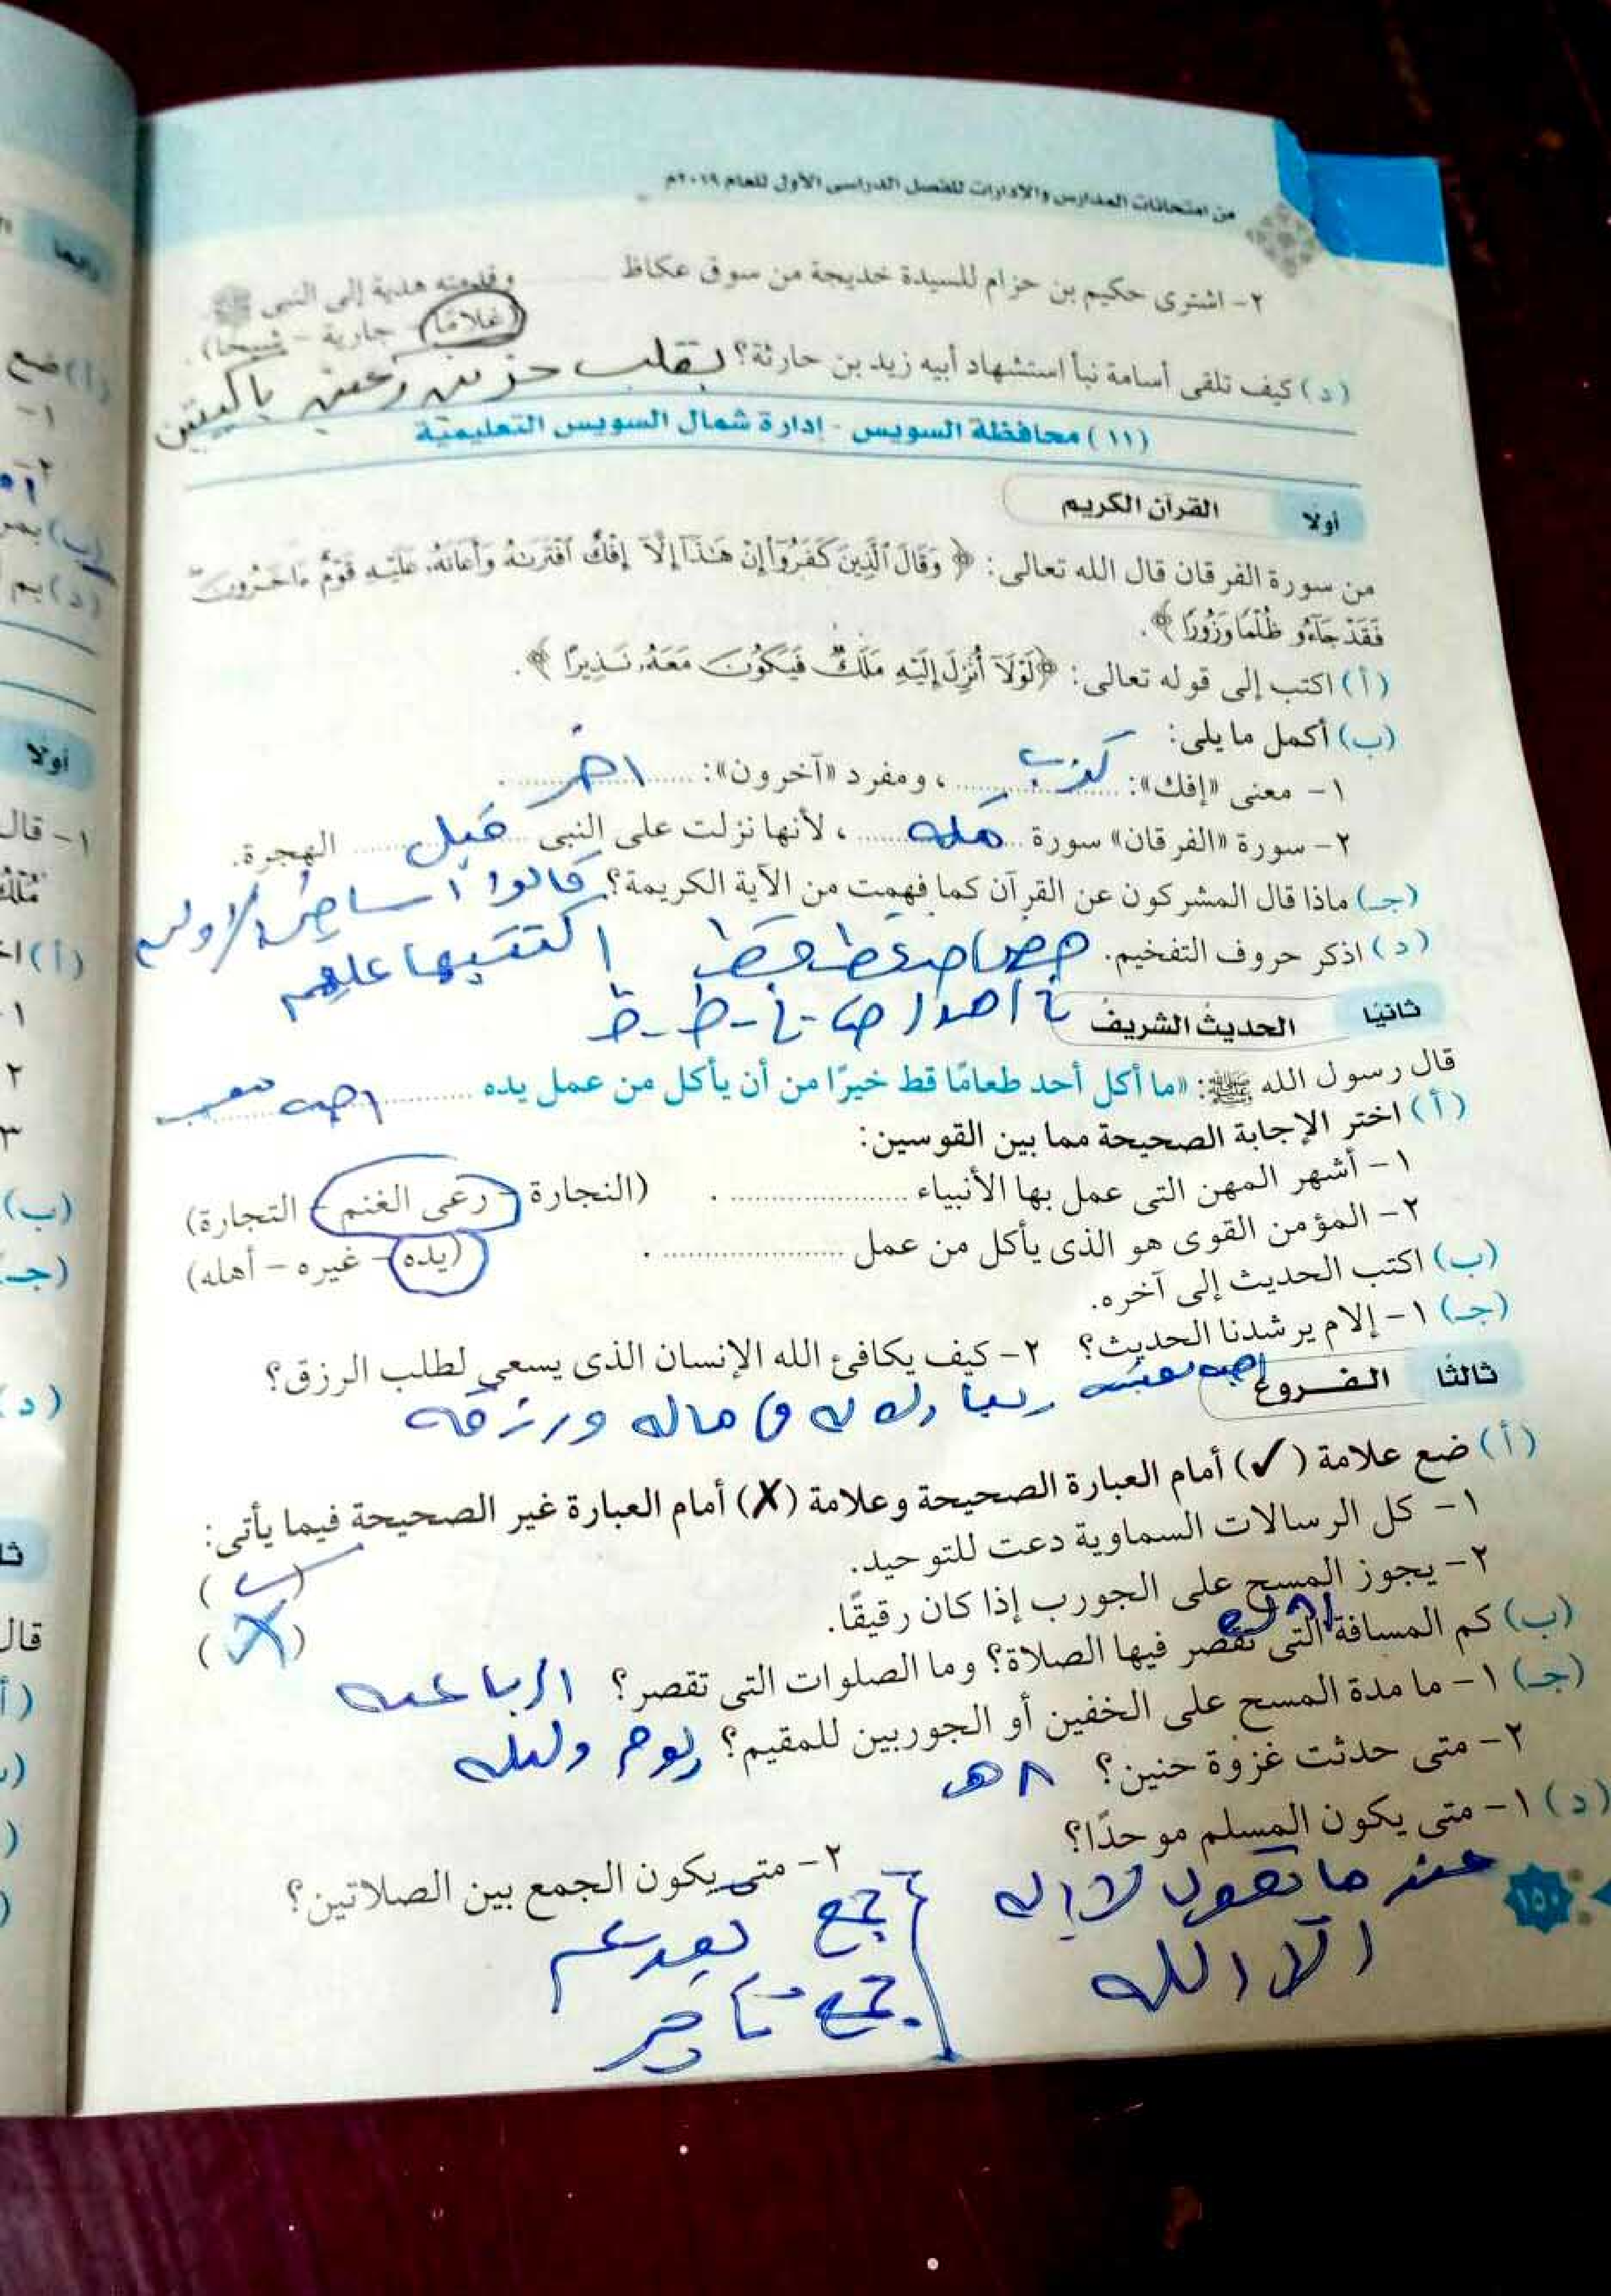 من امتحانات المدارس والإدارات للفصل الدراسى الأول للعام ٢٠١٩م
٢- اشترى حكيم بن حزام للسيدة خديجة من سوق عكاظ ........ وقدمته هدية إلى النبى ﷺ
(غلامًا - جارية - شيخا).
(د) كيف تلقى أسامة نبأ استشهاد أبيه زيد بن حارثة؟ بقلب حزين وعين باكيتين
(١١) محافظة السويس - إدارة شمال السويس التعليمية
أولًا القرآن الكريم
من سورة الفرقان قال الله تعالى: ﴿وَقَالَ ٱلَّذِينَ كَفَرُوٓا۟ إِنْ هَـٰذَآ إِلَّآ إِفْكٌ ٱفْتَرَىٰهُ وَأَعَانَهُۥ عَلَيْهِ قَوْمٌ ءَاخَرُونَ
فَقَدْ جَآءُو ظُلْمًا وَزُورًا﴾.
(أ) اكتب إلى قوله تعالى: ﴿لَوْلَآ أُنزِلَ إِلَيْهِ مَلَكٌ فَيَكُونَ مَعَهُۥ نَذِيرًا﴾.
(ب) أكمل ما يلى:
١- معنى «إفك»: كذب ، ومفرد «آخرون»: اخر .
٢- سورة «الفرقان» سورة مكه ، لأنها نزلت على النبى قبل الهجرة.
(جـ) ماذا قال المشركون عن القرآن كما فهمت من الآية الكريمة؟ قالوا اساطير الاولين
اكتتبها
(د) اذكر حروف التفخيم.
ثانيًا الحديث الشريف
قال رسول الله ﷺ: «ما أكل أحد طعامًا قط خيرًا من أن يأكل من عمل يده ........
(أ) اختر الإجابة الصحيحة مما بين القوسين:
١- أشهر المهن التى عمل بها الأنبياء ........ . (النجارة - رعى الغنم - التجارة)
٢- المؤمن القوى هو الذى يأكل من عمل ........ . (يده - غيره - أهله)
(ب) اكتب الحديث إلى آخره.
(جـ) ١- إلام يرشدنا الحديث؟ ٢- كيف يكافئ الله الإنسان الذى يسعى لطلب الرزق؟
يبارك له فى ماله ورزقه
ثالثًا الفروع
(أ) ضع علامة (✓) أمام العبارة الصحيحة وعلامة (✗) أمام العبارة غير الصحيحة فيما يأتى:
١- كل الرسالات السماوية دعت للتوحيد. (✓)
٢- يجوز المسح على الجورب إذا كان رقيقًا. (✗)
(ب) كم المسافة التى تقصر فيها الصلاة؟ وما الصلوات التى تقصر؟ الرباعيه
(جـ) ١- ما مدة المسح على الخفين أو الجوربين للمقيم؟ يوم وليله
٢- متى حدثت غزوة حنين؟ ٨هـ
(د) ١- متى يكون المسلم موحدًا؟
عندما نقول لا إله
الا الله
٢- متى يكون الجمع بين الصلاتين؟
جمع تقديم
جمع تأخير
١٥٠
أولًا